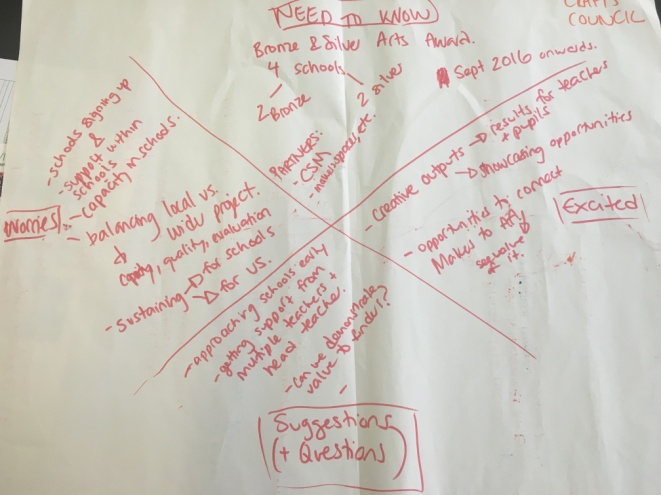 CRAFTS
COUNCIL
NEED TO KNOW
Bronze & Silver Arts Award.
4 schools
2 Bronze
2 silver
Sept 2016 onwards.
PARTNERS:
- CSM
- makerspaces, etc.
Worries!
- schools signing up
&
support within
schools
- capacity in schools.
- balancing local vs.
wider project.
capacity, quality, evaluation
- sustaining → for schools.
→ for us.
- creative outputs → results for teachers
+ pupils
→ showcasing opportunities
- opportunities to connect
Makers to
value
it.
Excited
- approaching schools early
- getting support from
multiple teachers +
head teacher.
- can we demonstrate
value to funders?
-
Suggestions
(+ Questions)